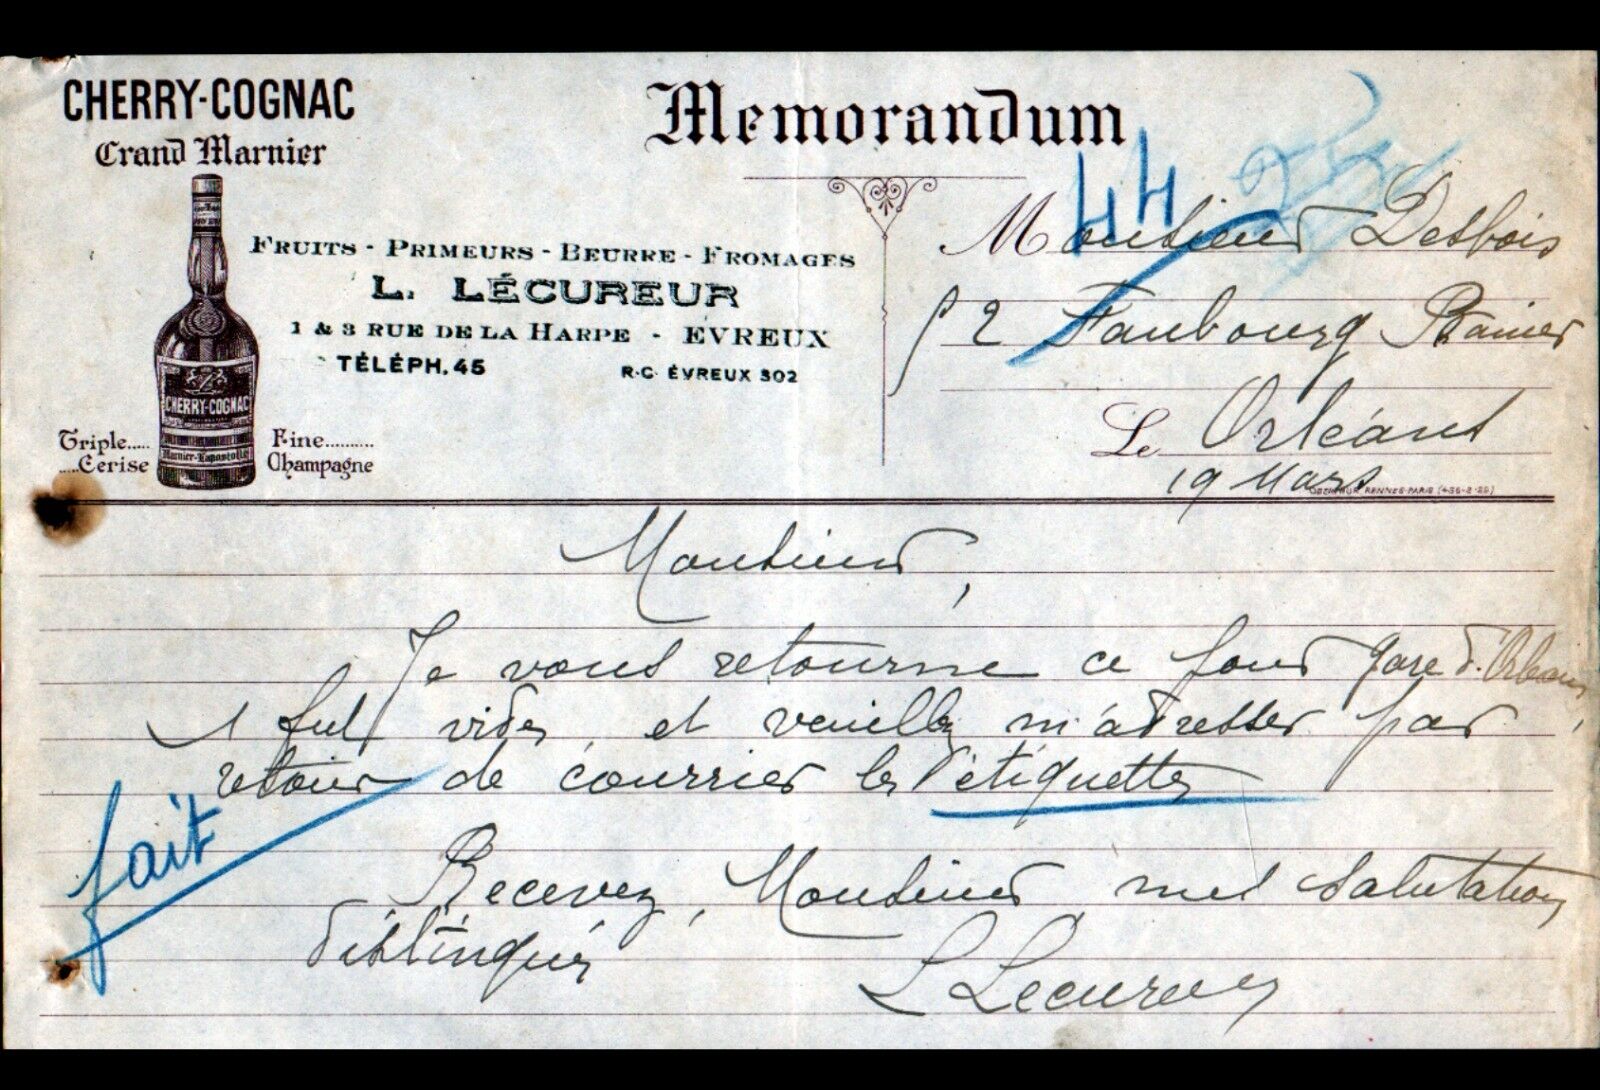 CHERRY-COGNAC
Grand Marnier
Memorandum
44
FRUITS - PRIMEURS - BEURRE - FROMAGES
L. LÉCUREUR
1 & 3 RUE DE LA HARPE - EVREUX
TÉLÉPH. 45 R.C. ÉVREUX 302
CHERRY-COGNAC
Marnier-Lapostolle
Triple.....
....Cerise
Fine..........
Champagne
Monsieur Desbois
52 Faubourg Banier
Le Orléans
19 Mars
OBERTHUR, RENNES-PARIS
Monsieur,
Je vous retourne ce jour gare d'Orléans,
1 fut vide, et veuillez m'adresser par
retour de courrier les étiquettes
fait
Recevez, Monsieur mes salutations
distingués
L Lecureur